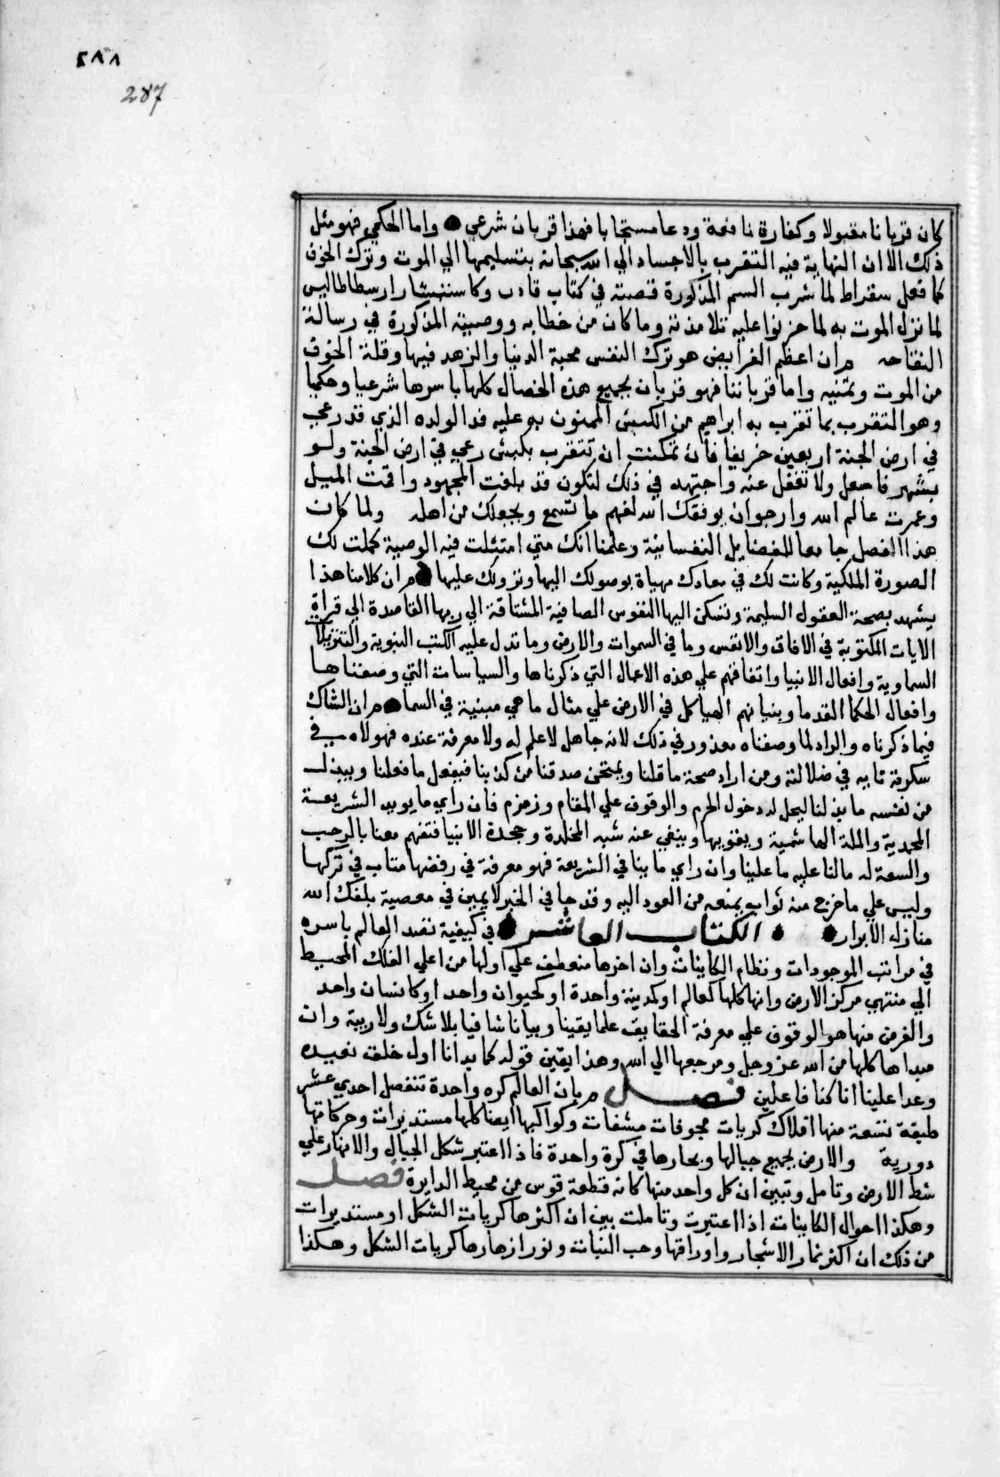 ٢٨٨
287
كان قربانا مقبولا وكفارة نافعة ودعا مستجابا فهذا قربان شرعي واما الحكمي فهو مثل
ذلك الا ان النهاية فيه التقرب بالاجساد الي الله سبحانه بتسليمها الي الموت وترك الخوف
كما فعل سقراط لما شرب السم المذكورة قصته في كتاب فادن وكاستبشار ارسطاطاليس
لما نزل الموت به لما حزنوا عليه تلامذته وما كان من خطابه ووصيته المذكورة في رسالة
التفاحه وان اعظم الفرايض هو ترك النفس محبة الدنيا والزهد فيها وقلة الخوف
من الموت وتمنيه واما قرباننا فهو قربان يجمع هذه الخصال كلها باسرها شرعيا وحكميا
وهو التقرب بما تقرب به ابراهيم من الكبش الممنون به عليه فدا لولده الذي قد رعي
في ارض الجنة اربعين خريفا فان تمكنت ان تتقرب بكبش رعي في ارض الجنة ولو
بشهر فافعل ولا تغفل عنه واجتهد في ذلك لتكون قد بلغت المجهود واقمت الميل
وعمرت عالم الله وارجوا ان يوفقك الله لفهم ما تسمع ويجعلك من اهله ولما كان
هذا الفصل جامعا للفضايل النفسانية وعلمنا انك متي امتثلت فيه الوصية كملت لك
الصورة الملكية وكانت لك في معادك مهياة بوصولك اليها ونزولك عليها وان كلامنا هذا
يشهد بصحة العقول السليمة وتسكن اليها النفوس الصافية المشتاقة الي ربها القاصدة الي قراة
الايات المكتوبة في الافاق والانفس وما في السموات والارض وما تدل عليه الكتب النبوية والتنزيلات
السماوية وافعال الانبيا واتفاقهم علي هذه الاعمال التي ذكرناها والسياسات التي وصفناها
وافعال الحكما القدما وبنيانهم الهياكل في الارض علي مثال ما هي مبنية في السما وان الشاك
فيما ذكرناه والراد لما وصفناه معذور في ذلك لانه جاهل لا علم له ولا معرفة عنده فهو لاه في
سكرته تايه في ضلالته ومن اراد صحة ما قلنا ويمتحن صدقنا من كذبنا فيفعل ما فعلنا ويبذل
من نفسه ما بذلنا ليحل له دخول الحرم والوقوف علي المقام وزمزم فان راي ما يويد الشريعة
المحمدية والملة الهاشمية ويقويها وينفي عنه شبه الملحدة وجحدة الانبيا فتفهم معنا بالرحب
والسعة له مالنا عليه ما علينا وان راي ما ينافي الشريعة فهو معرفة في رفضها متاب في تركها
وليس علي ما خرج منه ثواب يمنعه من العود اليه وقد جا في الخبر لا يمين في معصية بلغك الله
منازل الابرار الكتاب العاشر في كيفية نضد العالم باسره
في مراتب الموجودات ونظام الكاينات وان اخرها منعطف علي اولها من اعلي الفلك المحيط
الي منتهي مركز الارض وانها كلها كعالم او كمدينة واحدة او كحيوان واحد او كانسان واحد
والغرض منها هو الوقوف علي معرفة الحقايق علما يقينا وبيانا شافيا بلا شك ولا ريبة وان
مبداها كلها من الله عز وجل ومرجعها الي الله وهذا يقين قوله كما بدانا اول خلق نعيده
وعدا علينا انا كنا فاعلين فصل وبان العالم كره واحدة تنفصل احدي عشر
طبقة تسعة منها افلاك كريات مجوفات مشفات وكواكبها ايضا كلها مستديرات وحركاتها
دورية والارض بجميع جبالها وبحارها في كرة واحدة فاذا اعتبر شكل الجبال والانهار علي
شط الارض وتامل وتبين ان كل واحد منها كانه قطعة قوس من محيط الدايرة فصل
وهكذا احوال الكاينات اذا اعتبرت وتاملت بين ان اكثرها كريات الشكل او مستديرات
من ذلك ان اكثر ثمار الاشجار واوراقها وحب النبات ونور ازهارها كريات الشكل وهكذا